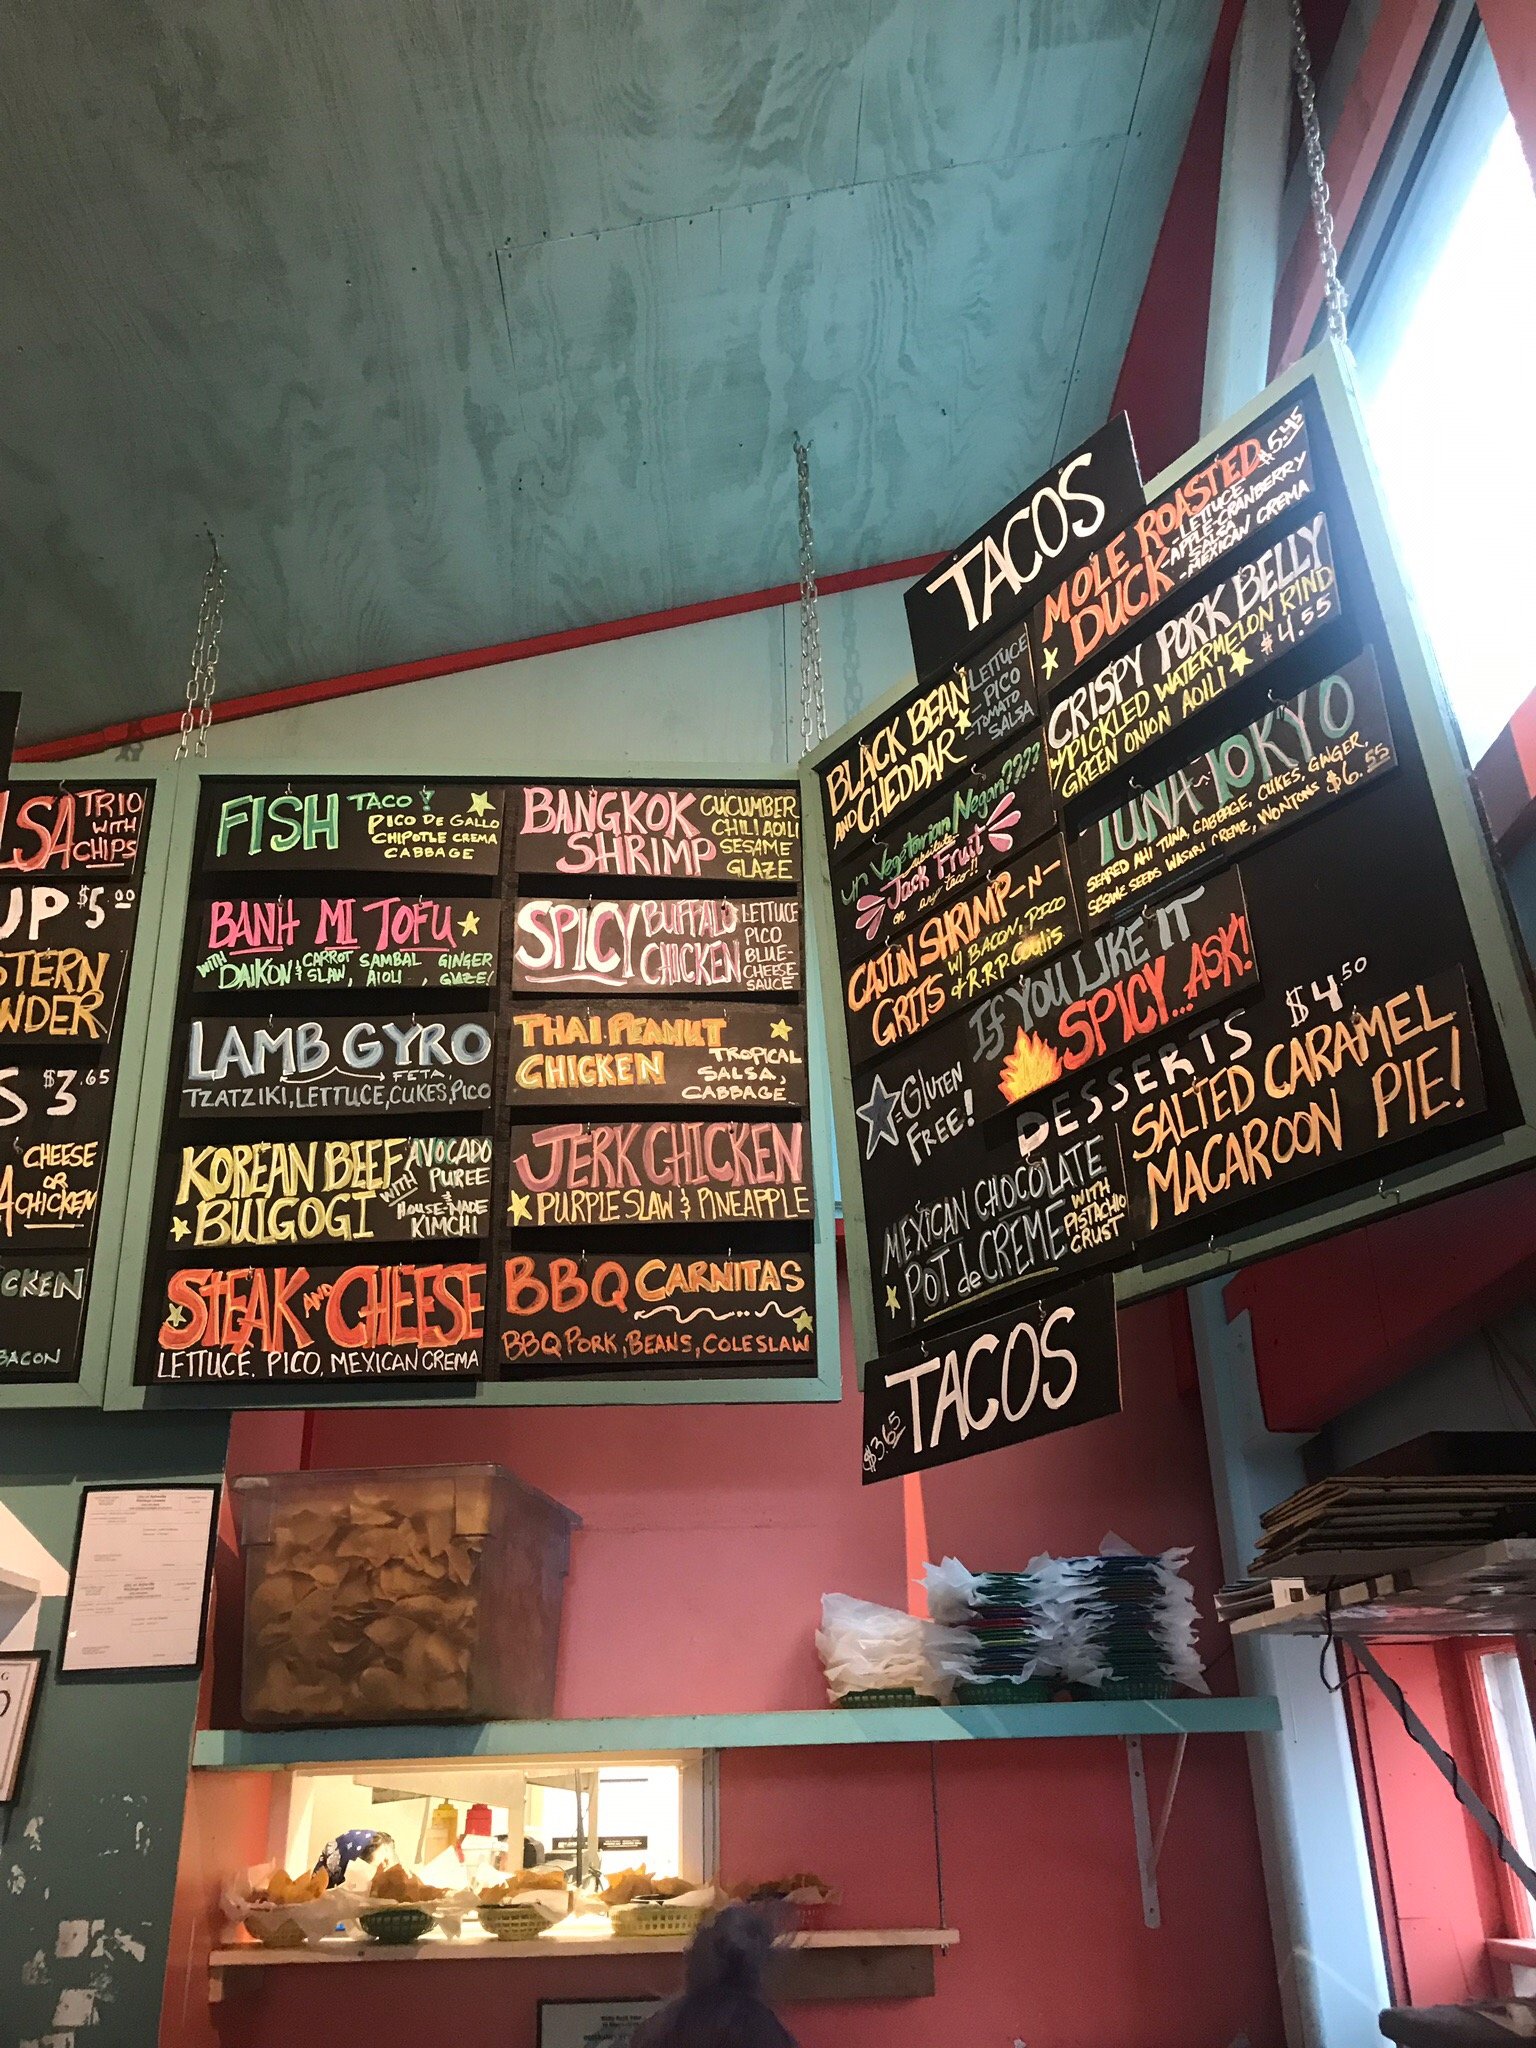 TRIO
WITH
CHIPS
$5.00
$3.65
CHEESE
OR
CHICKEN
BACON
FISH TACO!
PICO DE GALLO
CHIPOTLE CREMA
CABBAGE
BANH MI TOFU
WITH DAIKON & CARROT SLAW, SAMBAL AIOLI, GINGER GLAZE!
LAMB GYRO
FETA,
TZATZIKI, LETTUCE, CUKES, PICO
KOREAN BEEF
BULGOGI
WITH AVOCADO
PUREE
&
HOUSE-MADE
KIMCHI
STEAK AND CHEESE
LETTUCE, PICO, MEXICAN CREMA
BANGKOK
SHRIMP
CUCUMBER
CHILI AOILI
SESAME
GLAZE
SPICY BUFFALO
CHICKEN
LETTUCE
PICO
BLUE-
CHEESE
SAUCE
THAI PEANUT
CHICKEN
TROPICAL
SALSA,
CABBAGE
JERK CHICKEN
PURPLE SLAW & PINEAPPLE
BBQ CARNITAS
BBQ PORK, BEANS, COLESLAW
TACOS
BLACK BEAN
AND CHEDDAR
-LETTUCE
-PICO
-TOMATO
SALSA
ur Vegetarian Negan????
substitute
Jack Fruit
on any taco!!
CAJUN SHRIMP-N-
GRITS
W/ BACON, PICO
& R.R.P. Coulis
MOLE ROASTED
DUCK
$5.45
-LETTUCE
-APPLE-CRANBERRY
SALSA
-MEXICAN CREMA
CRISPY PORK BELLY
W/ PICKLED WATERMELON RIND
GREEN ONION AOILI
$4.55
TUNA TOKYO
SEARED AHI TUNA, CABBAGE, CUKES, GINGER,
SESAME SEEDS WASABI CREME, WONTONS $6.55
IF YOU LIKE IT
SPICY... ASK!
=GLUTEN
FREE!
DESSERTS $4.50
MEXICAN CHOCOLATE
POT de CREME
WITH
PISTACHIO
CRUST
SALTED CARAMEL
MACAROON PIE!
$3.65 TACOS